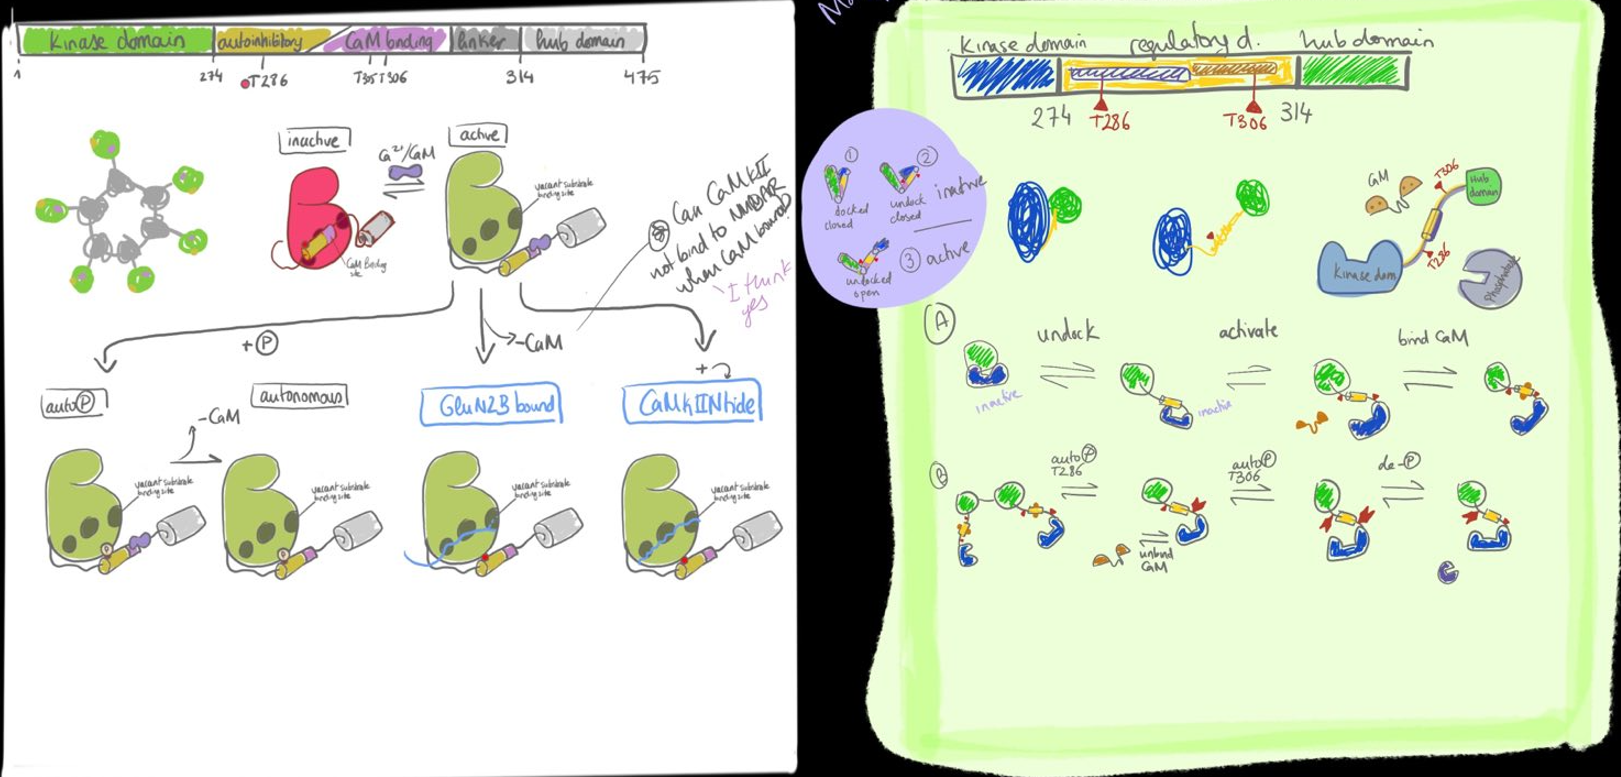 kinase domain
autoinhibitory
CaM binding
linker
hub domain
1
274
T286
T305 T306
314
475
inactive
Ca²⁺/CaM
active
vacant substrate
binding site
CaM Binding
site
Can CaMKII
not bind to NMDAR
when CaM bound?
I think
yes
+ P
-CaM
+
auto P
autonomous
GluN2B bound
CaMKIINtide
-CaM
vacant substrate
binding site
vacant substrate
binding site
vacant substrate
binding site
vacant substrate
binding site
kinase domain
regulatory d.
hub domain
274
T286
T306
314
1
docked
closed
2
undock
closed
inactive
undocked
open
3 active
CaM
T306
Hub
domain
T286
Kinase dom
Phosphatase
A
undock
activate
bind CaM
inactive
inactive
B
auto P
T286
auto P
T306
de-P
unbind
CaM